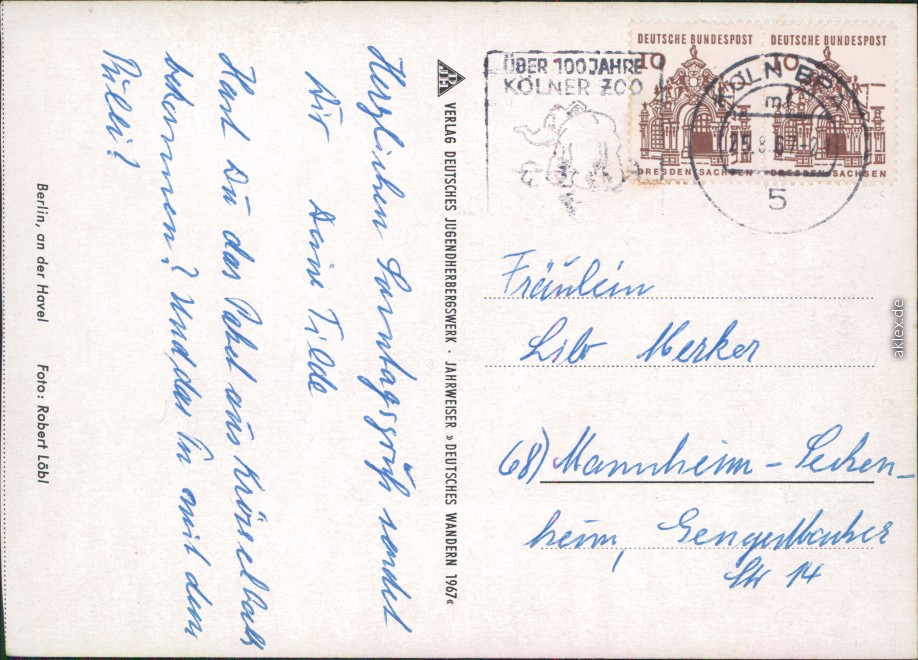 Herzlichen Sonntagsgruß sendet
Dir Deine Tilde
Hast Du das Paket aus
bekommen? Und das mit dem
Berlin, an der Havel Foto: Robert Löbl
VERLAG DEUTSCHES JUGENDHERBERGSWERK · JAHRWEISER » DEUTSCHES WANDERN 1967«
ÜBER 100 JAHRE
KÖLNER ZOO
DEUTSCHE BUNDESPOST
10
DRESDEN/SACHSEN
DEUTSCHE BUNDESPOST
10
DRESDEN/SACHSEN
KÖLN
mf
5
Fräulein
Lilo Merker
68) Mannheim - Secken-
heim,
Str 14
akleX.de